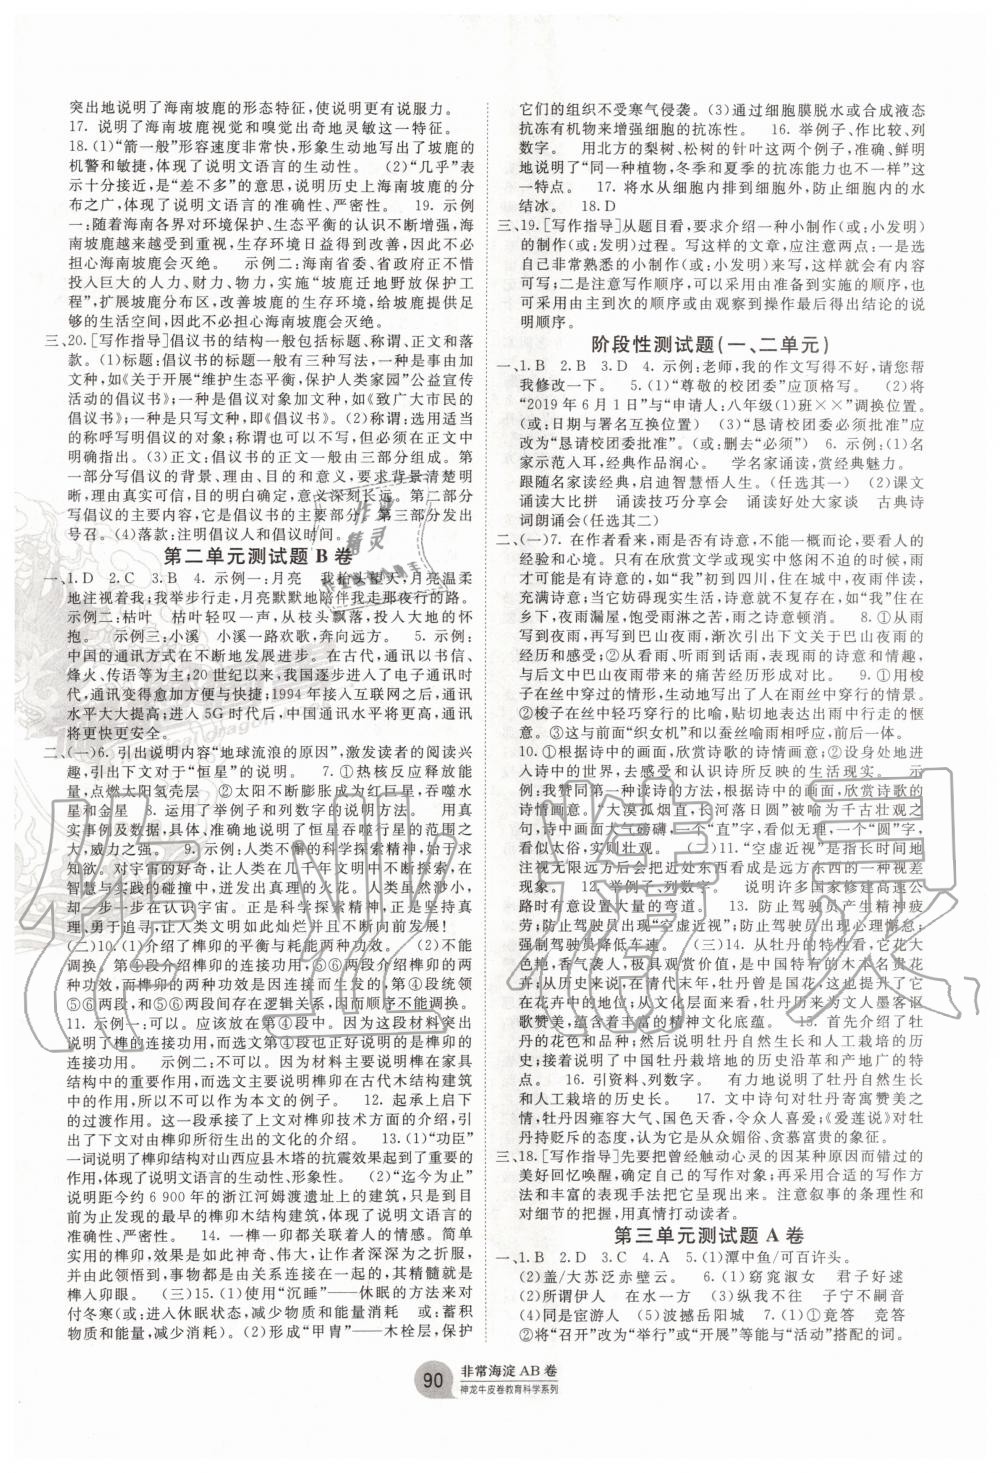 突出地说明了海南坡鹿的形态特征,使说明更有说服力。
17. 说明了海南坡鹿视觉和嗅觉出奇地灵敏这一特征。
18.(1)“箭一般”形容速度非常快,形象生动地写出了坡鹿的
机警和敏捷,体现了说明文语言的生动性。 (2)“几乎”表
示十分接近,是“差不多”的意思,说明历史上海南坡鹿的分
布之广,体现了说明文语言的准确性、严密性。 19. 示例
一:随着海南各界对环境保护、生态平衡的认识不断增强,海
南坡鹿越来越受到重视,生存环境日益得到改善,因此不必
担心海南坡鹿会灭绝。 示例二:海南省委、省政府正不惜
投入巨大的人力、财力、物力,实施“坡鹿迁地野放保护工
程”,扩展坡鹿分布区,改善坡鹿的生存环境,给坡鹿提供足
够的生活空间,因此不必担心海南坡鹿会灭绝。
三、20.[写作指导]倡议书的结构一般包括标题、称谓、正文和落
款。(1)标题:倡议书的标题一般有三种写法,一种是倡议内容加
文种,如《关于开展“维护生态平衡,保护人类家园”公益宣传
活动的倡议书》;一种是倡议对象加文种,如《致广大市民的
倡议书》;一种是只写文种,即《倡议书》。(2)称谓:选用适当
的称呼写明倡议的对象;称谓也可以不用,但必须在正文中
明确指出。(3)正文:倡议书的正文一般由三部分组成。第
一部分写倡议的背景、理由、目的和意义,要求背景清楚明
晰,理由真实可信,目的明白确定,意义深刻长远。第二部分
写倡议的主要内容,它是倡议书的主要部分。第三部分发出
号召。(4)落款:注明倡议人和倡议时间。
第二单元测试题 B 卷
一、1.D 2.C 3.B 4. 示例一:月亮 我抬头望天,月亮温柔
地注视着我;我举步行走,月亮默默地陪伴我走那夜行的路。
示例二:枯叶 枯叶轻叹一声,从枝头飘落,投入大地的怀
抱。 示例三:小溪 小溪一路欢歌,奔向远方。 5. 示例:
中国的通讯方式在不断地发展变化:在古代,通讯以书信、
烽火、传语等为主;20 世纪以来,我国逐步进入了电子通讯时
代,通讯变得愈加方便与快捷;1994 年接入互联网之后,通讯
水平大大提高;进入 5G 时代后,中国通讯水平将更高,通讯
将更快更安全。
二、(一)6. 引出说明内容“地球流浪的原因”,激发读者的阅读兴
趣,引出下文对于“恒星”的说明。 7. ①热核反应释放能
量,点燃太阳氢壳层 ②太阳不断膨胀成为红巨星,吞噬水
星和金星 8. 运用了举例子和列数字的说明方法。 用真
实事例及数据,具体、准确地说明了恒星吞噬行星的范围之
大,威力之强。 9. 示例:人类不懈的科学探索精神,始于求
知欲。对宇宙的好奇心,让人类在几千年文明中不断探索,在
智慧与实践的碰撞中,迸发出真理的火花。人类虽然渺小,
却一直在认识宇宙。正是科学探索精神,正是人类坚守真
理、勇于追寻,让人类文明如此灿烂并且有无限可能发展!
(二)10.(1)介绍了榫卯的平衡与耗能两种功效。 (2)不能
调换。第④段介绍榫卯的连接功用,⑤⑥两段介绍榫卯的两
种功效,而榫卯的两种功效是因连接而生发的,第④段统领
⑤⑥两段,⑤⑥两段间存在逻辑关系,所以顺序不能调换。
11. 示例一:可以。应该放在第④段中。因为这段材料突出
说明了榫的连接功用,而选文第④段也正好说明的是榫卯的
功用。 示例二:不可以。因为材料主要说明榫卯在家具
结构中的重要作用,而选文主要说明榫卯在古代木结构建筑
中的作用,所以不可以作为本文的例子。 12. 起承上启下
的过渡作用。这一段承接了上文对榫卯技术方面的介绍,引
出下文对由榫卯所衍生出的文化的介绍。 13.(1)“功臣”
一词说明了榫卯结构对山西应县木塔的抗震效果有非常重要
的作用,体现了说明文语言的生动性、形象性。 (2)“迄今为止”
说明距今约 6 900 年的浙江河姆渡遗址上的建筑,只是到目
前为止发现的最早的榫卯木结构建筑,体现了说明文语言的
准确性、严密性。 14. 一榫一卯都关联着人的情感。简单
实用的榫卯,效果是如此神奇、伟大,让作者深深为之折服,
并由此产生关于榫卯文化更多的思考和感慨,其精髓就是
榫入卯眼。 (三)15.(1)使用“沉睡”——休眠的方法来对
付冬寒(或:进入休眠状态,减少物质和能量消耗 或:蓄积
物质和能量,减少消耗)。(2)形成“甲胄”——木栓层,保护
它们的组织不受寒气侵袭。(3)通过细胞膜脱水或合成液态
抗冻有机物来增强细胞的抗冻性。 16. 举例子、作比较、列
数字。 用北方的梨树、松树的针叶这两个例子,准确、鲜明
地说明了“同一种植物,冬季和夏季的抗冻能力也不一样”这
一特点。 17. 将水从细胞内排到细胞外,防止细胞内的水
结冰。 18.D
三、19.[写作指导]从题目看,要求介绍一种小制作(或:小发明)
的制作(或:发明)过程。写这样的文章,应注意两点:一是选
自己非常熟悉的小制作(或:小发明)来写,这样的内容具体
可写;二是注意写作顺序,可以采用由准备到实施的顺序,也
可以采用由主到次的顺序或由观察到操作最后得出结论的说
明顺序。
阶段性测试题(一、二单元)
一、1.B 2.D 3.D 4. 示例:老师,我的作文写得不好,请您帮
我修改一下。 5.(1)“尊敬的校团委”应顶格写。 (2)将
“2019 年 6 月 1 日”与“申请人:八年级(1)班××”调换位置。
(或:日期与署名互换位置) (3)“恳请校团委必须批准”应
改为“恳请校团委批准”。(或:删去“必须”) 6. 示例:(1)名
家示范入耳,经典作品润心。 学名家诵读,赏经典魅力。
跟随名家读经典,启迪智慧悟人生。(任选其一) (2)课文
诵读大比拼 诵读技巧分享会 诵读好处大家谈 古典诗
词朗诵会(任选其二)
二、(一)7. 在作者看来,雨是否有诗意,不能一概而论,要看人的
经验和心境。只有在欣赏文学艺术中悠闲不迫的状态下,雨
才可能是有诗意的,比如“我”初到四川,住在城里,夜雨伴读,
充满诗意;当它妨碍现实的生活时,就不是有诗意的,比如在
乡下,夜雨漏屋,饱受雨灾之苦,雨之诗意顿消。 8. ①从雨
写到夜雨,再到巴山夜雨,渐次引出下文关于巴山夜雨的
经历和感受;②从看雨、听雨到话雨,表现作者的雅兴和情趣,
与下文巴山夜雨带来的痛苦经历形成对比。 9. ①用梭
子在丝中穿过的情形,生动地写出了人在雨丝中穿行的情景。
②梭子在丝中轻巧穿行的比喻,写出了人在雨丝中的轻盈惬
意。③这与前面“织女机”以和以蚕丝喻雨相呼应,前后一体。
10. ①依据诗中的画面,欣赏诗歌的诗情画意;②设身处地进
入诗中的世界,去感受和认识诗所反映的生活现实。 示
例:我赞同第一种读诗的方法,根据诗中的画面,欣赏诗歌的
诗情画意。“大漠孤烟直,长河落日圆”被称为千古壮观之句,
诗中画面大气磅礴,一个“直”字,看似无理,一个“圆”字,
看似太俗,实则壮观。 (二)11.“空虚近视”是指长时间地
注视无限远方后会把近处东西看成是远方东西的一种视差
现象。 12. 举例子、列数字。 说明许多国家修建高速公
路时有意设置大量的弯道。 13. 防止驾驶员产生精神疲
劳;防止驾驶员出现“空虚近视”;防止驾驶员出现心理懈怠;
强制驾驶员降低车速。 (三)14. 从牡丹的特性看,它花大
色艳,香气袭人,极具观赏价值,是中国特有的木本名贵花
卉;从历史看,在清代末年,牡丹曾是国花,这也提升了它
在花卉中的地位;从文化层面来看,牡丹在文人墨客讴
歌赞美下,蕴含着丰富的精神文化底蕴。 15. 首先介绍了牡
丹的花色和品种;然后说明牡丹自然生长和人工栽培的历史;
最后说明了中国牡丹栽培地的历史沿革和产地广的特
点。 16. 引资料、列数字。 有力地说明了牡丹自然生长
和人工栽培的历史长。 17. 文中诗句对牡丹寄寓赞美之
情,牡丹因雍容大气、国色天香,令众人喜爱;《爱莲说》对牡
丹持贬斥的态度,它是从众媚俗、贪慕富贵的象征。
三、18.[写作指导]先要把曾经触动心灵的因某种原因而错过的
美好回忆唤醒,确定自己的写作内容,再采用合适的写作方
法和丰富的表现手法把它呈现出来。注意叙事的条理性和
对细节的把握,用真情打动读者。
第三单元测试题 A 卷
一、1.B 2.D 3.C 4.A 5.(1)潭中鱼/可百许头。
(2)盖/大苏泛赤壁云。 6.(1)窈窕淑女 君子好逑
(2)所谓伊人 在水一方 (3)纵我不往 子宁不嗣音
(4)同是宦游人 (5)波撼岳阳城 7.(1)①竟答 竞答
②将“召开”改为“举行”或“开展”等能与“活动”搭配的词。
90
非常海淀 AB 卷
神龙牛皮卷教育科学系列
作业精灵